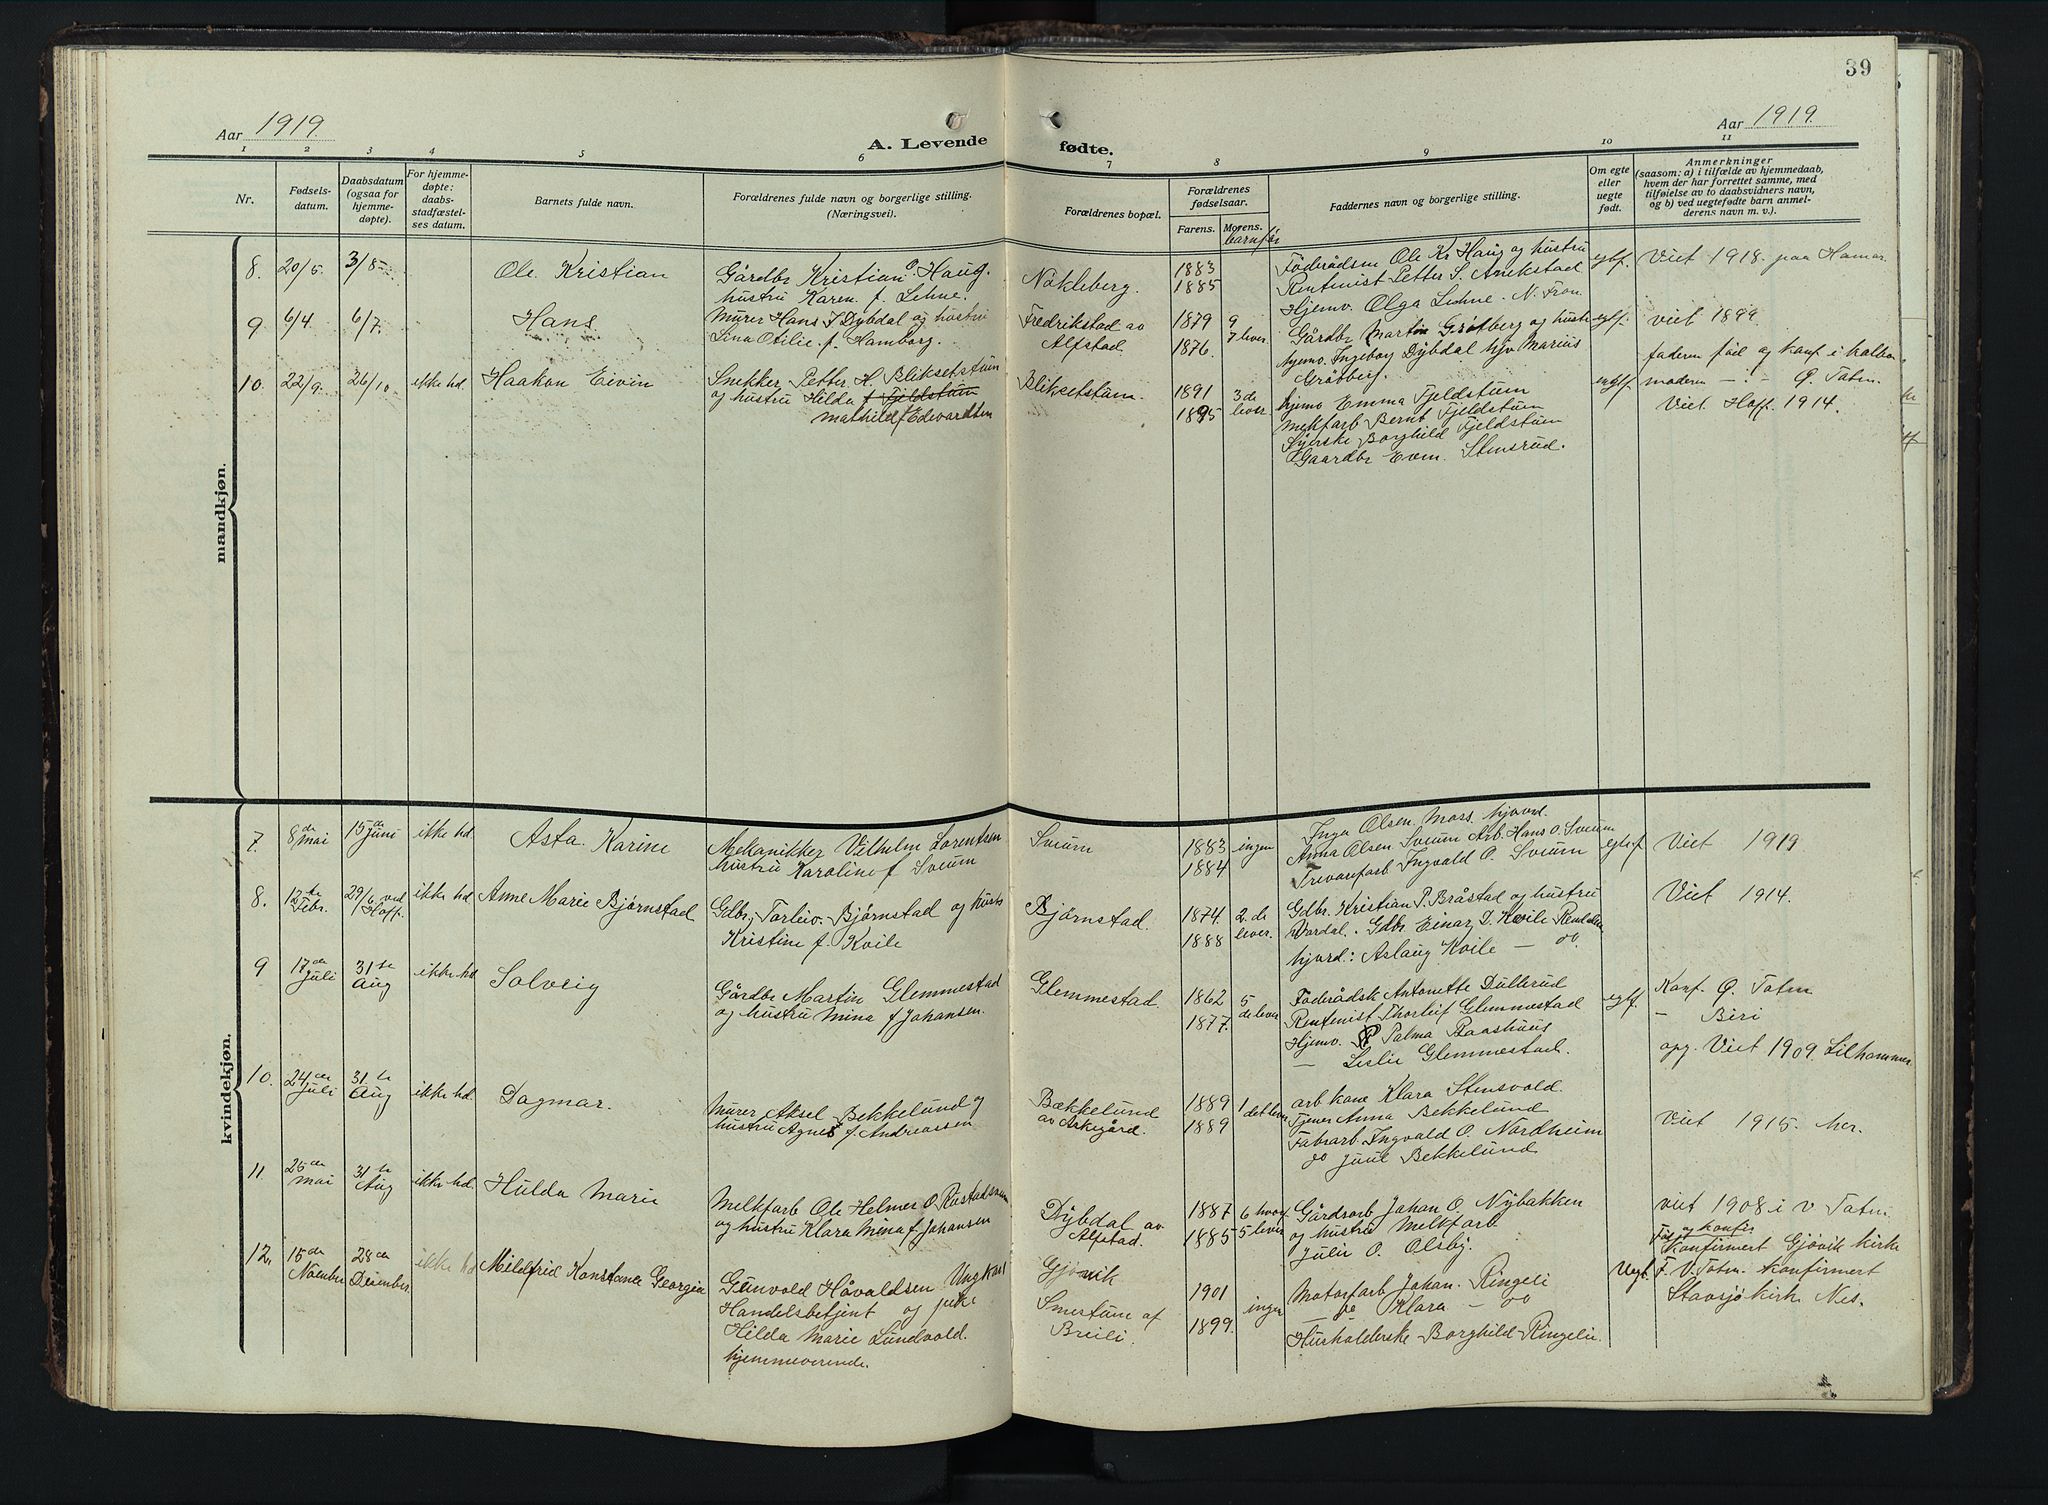 39
Aar 1919.
A. Levende fødte.
Aar 1919.
1 2 3 4 5 6 7 8 9 10 11
Nr.
Fødsels-
datum.
Daabsdatum
(ogsaa for
hjemme-
døpte).
For hjemme-
døpte:
daabs-
stadfæstel-
ses datum.
Barnets fulde navn.
Forældrenes fulde navn og borgerlige stilling.
(Næringsvei).
Forældrenes bopæl.
Forældrenes
fødselsaar.
Farens. Morens.
Faddernes navn og borgerlige stilling.
Om egte
eller
uegte
født.
Anmerkninger
(saasom: a) i tilfælde av hjemmedaab,
hvem der har forrettet samme, med
tilføielse av to daabsvidners navn,
og b) ved uegtefødte barn anmel-
derens navn m. v.).
mandkjøn.
8. 20/5. 3/8 Ole Kristian
Gårdbr Kristian O. Haug.
hustru Karen f. Lehne.
Nøkleberg.
1883
1885
Føderådsm Ole Kr Haug og hustru
Rentenist Petter S. Anekstad
Hjemv. Olga Lehne. N. Fron
egtf. Viet 1918. paa Hamar.
9 6/4. 6/7. Hans
Murer Hans J Dybdal og hustru
Lina Otilie f. Hamborg.
Fredrikstad av
Alfstad.
1879
1876.
9
7 lever.
Gårdbr Martin Grøtberg og hustr
hjemv. Ingeborg Dybdal hjv Marius
Grøtberg.
egtf. viet 1899
faderen fød og konf i Kolbu
moderen – : – Ø. Totn.
10. 22/9. 26/10 ikke hd. Haakon Eivin
Snekker Petter H. Bliksetstuen
og hustru Hilda f Fjeldstuen
Mathild f Edevardsen
Bliksetstuen.
1891
1895
3 de
lever.
hjemv Emma Fjeldstuen
Melkfarb Bernt Fjeldstuen
Syerske Borghild Fjeldstuen
Gaardbr Even. Stensrud.
egtf Viet. Hoff. 1914.
kvindekjøn.
7. 8de mai 15de juni ikke hd Asta Karine
Mekanikker Vilhelm Lorentsen
hustru Karoline f Sveum
Sveum
1883
1884
ingen
Inga Olsen Moss. hjvrd.
Anna Olsen Sveum Arb. Hans O. Sveum
Trevarefarb Ingvald O. Sveum
egtef Viet 1919
8. 12te Febr. 29/6 ved Hoff. ikke hd. Anne Marie Bjørnstad
Gdbr. Torleiv. Bjørnstad og hustr
Kristine f. Kvile
Bjørnstad.
1874
1888
2. de
lever.
Gdbr. Kristian P. Bråstad og hustru
Vardal. Gdbr Einar J. Kvile
hjvrd: Aslaug Kvile – do.
Viet 1914.
9 17de Juli 31te Aug ikke hd Solveig
Gårdbr Martin Glemmestad
og hustru Mina f Johansen.
Glemmestad
1862
1877.
5
de lever
Føderådsk Antonette Dullerud
Rentenist Thorleif Glemmestad
Hjemv. Palma Raashuus
– Leslie Glemmestad.
egtf Konf. Ø. Totn
– Biri
opg. Viet 1909. Lilhammer.
10. 24de Juli 31te Aug ikke hd. Dagmar.
Murer Aksel Bekkelund og
hustru Agnes f. Andreassen
Bækkelund
av Askegård.
1889
1889
1 det lever
arb kone Klara Stensvold.
Tjener Anna Bekkelund
Fabrarb Ingvald O. Nordheim
do Juul Bekkelund
Viet 1915. her.
11. 25de mai 31te Aug ikke hd. Hulda Marie
Melkfarb Ole Helmer O. Rustadstuen
og hustru Klara Mina f Johansen
Dybdal av
Alfstad.
1887
1885
6 hvoraf
5 lever
Gårdsarb Johan O. Nybakken
og hustru Melkfarb
Julie O. Olsby.
viet 1908 i v Totn.
12. 15de Noember 28de Desember. ikke hd Mildfrid Konstanse Georgia
Gunvald Håvaldsen Ungkarl
Handelsbetjent og pike
Hilda Marie Lundvold.
hjemmeverende.
Gjøvik
Smestuen af
Breili.
1901
1899.
ingen
Motorfarb Johan. Ringeli
Klara – do
Husholderske Borghild Ringelie.
Uegt. Fød og konfir
Konfirmert Gjøvik kirke
F. V. Totn. Konfirmert
Stavsjø kirke Nes.